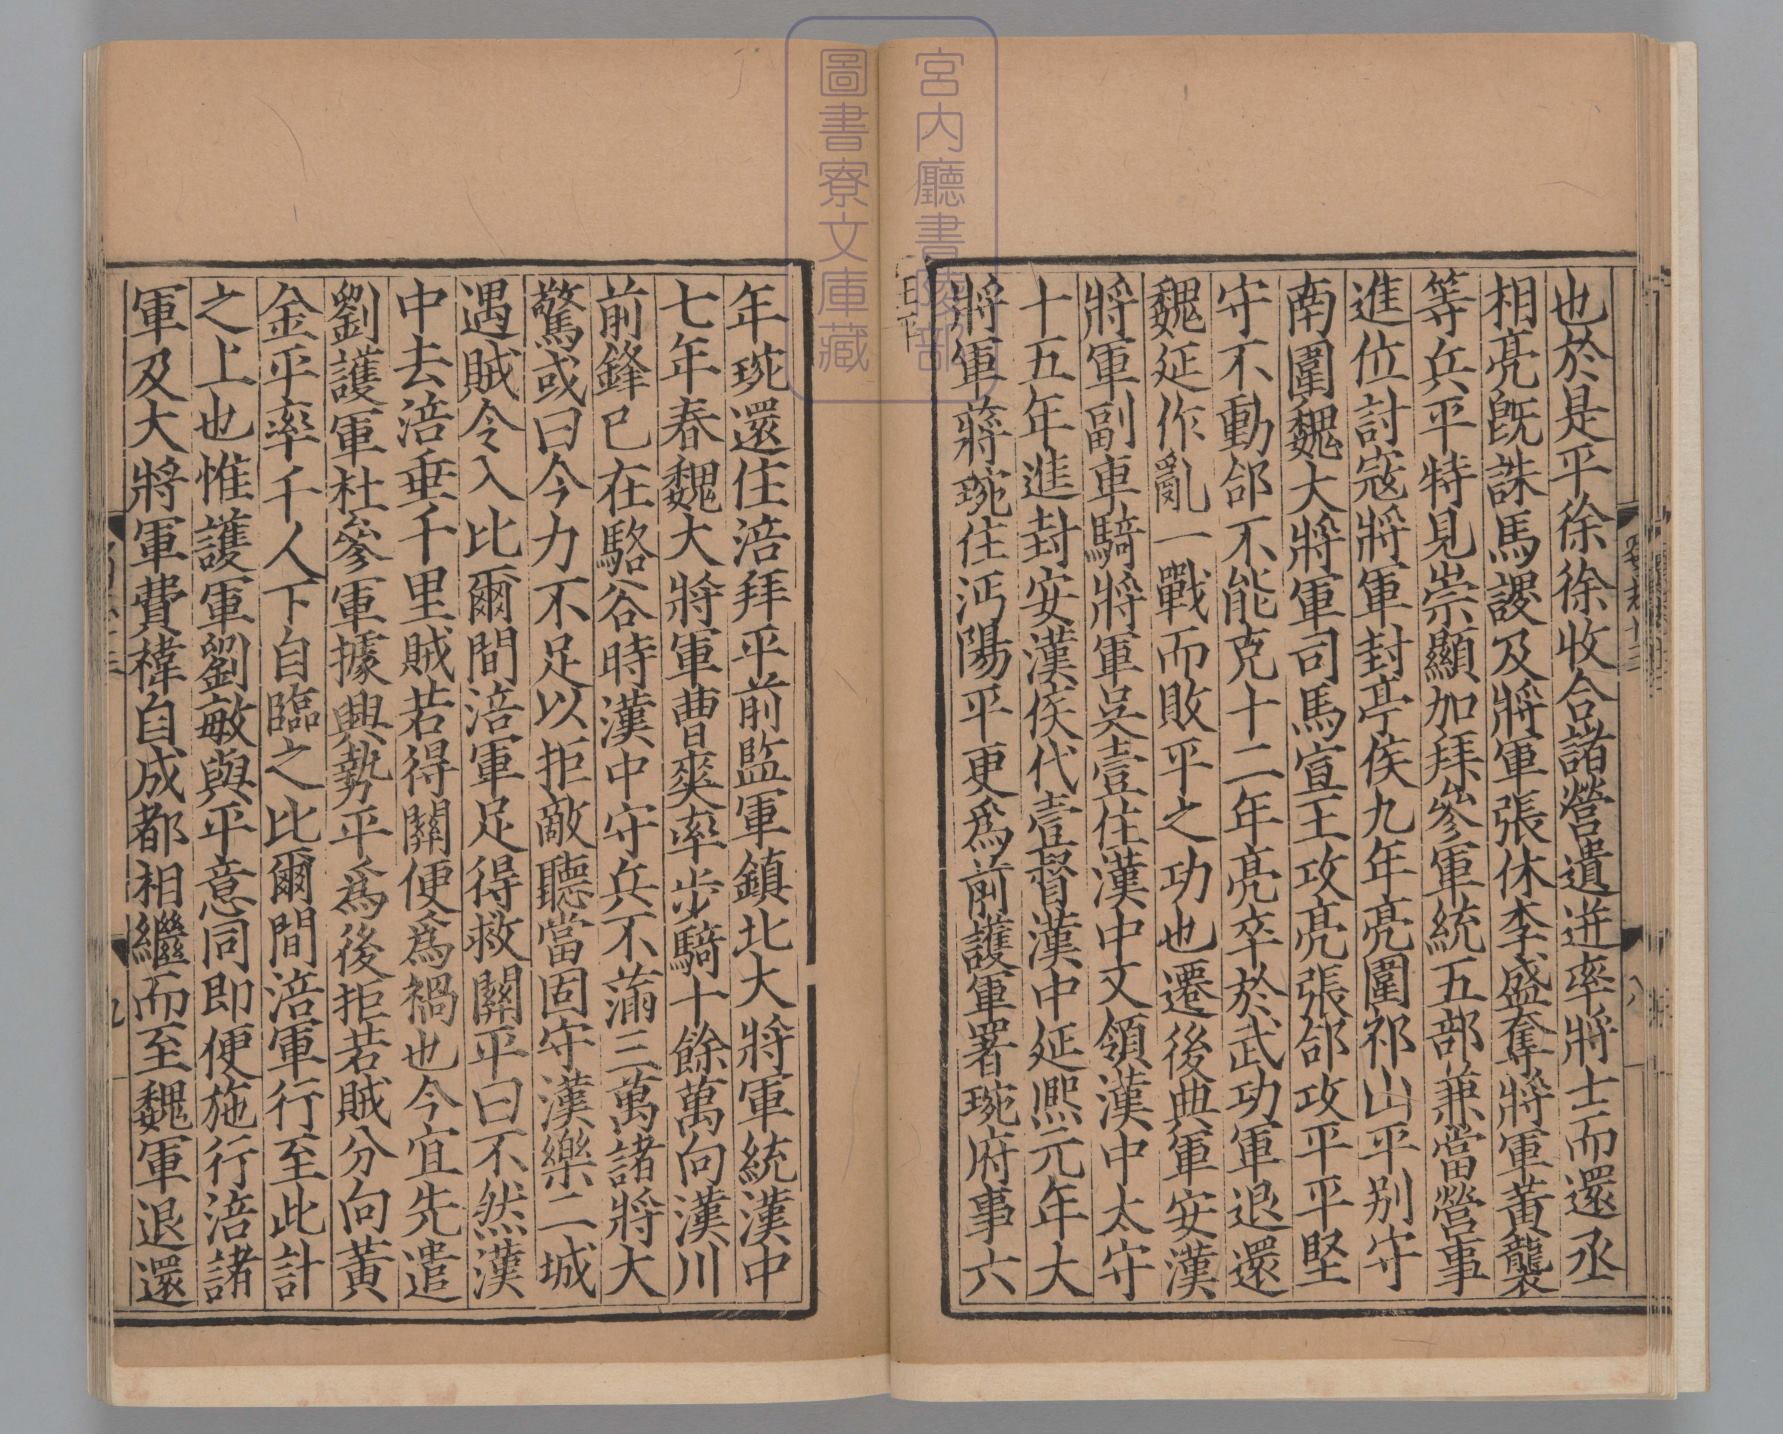 宮内廳書陵部
圖書寮文庫藏
也於是平徐徐收合諸營遺迸率將士而還丞
相亮旣誅馬謖及將軍張休李盛奪將軍黃襲
等兵平特見崇顯加拜參軍統五部兼當營事
進位討寇將軍封亭侯九年亮圍祁山平别守
南圍魏大將軍司馬宣王攻亮張郃攻平平堅
守不動郃不能克十二年亮卒於武功軍退還
魏延作亂一戰而敗平之功也遷後典軍安漢
將軍副車騎將軍吳壹住漢中文領漢中太守
十五年進封安漢侯代壹督漢中延熈元年大
將軍蔣琬住沔陽平更爲前護軍署琬府事六
年琬還住涪拜平前監軍鎮北大將軍統漢中
七年春魏大將軍曹爽率步騎十餘萬向漢川
前鋒已在駱谷時漢中守兵不滿三萬諸將大
驚或曰今力不足以拒敵聽當固守漢樂二城
遇賊令入比爾間涪軍足得救關平曰不然漢
中去涪垂千里賊若得關便爲禍也今宜先遣
劉護軍杜參軍據興勢平爲後拒若賊分向黃
金平率千人下自臨之比爾間涪軍行至此計
之上也惟護軍劉敏與平意同即便施行涪諸
軍及大將軍費禕自成都相繼而至魏軍退還
九